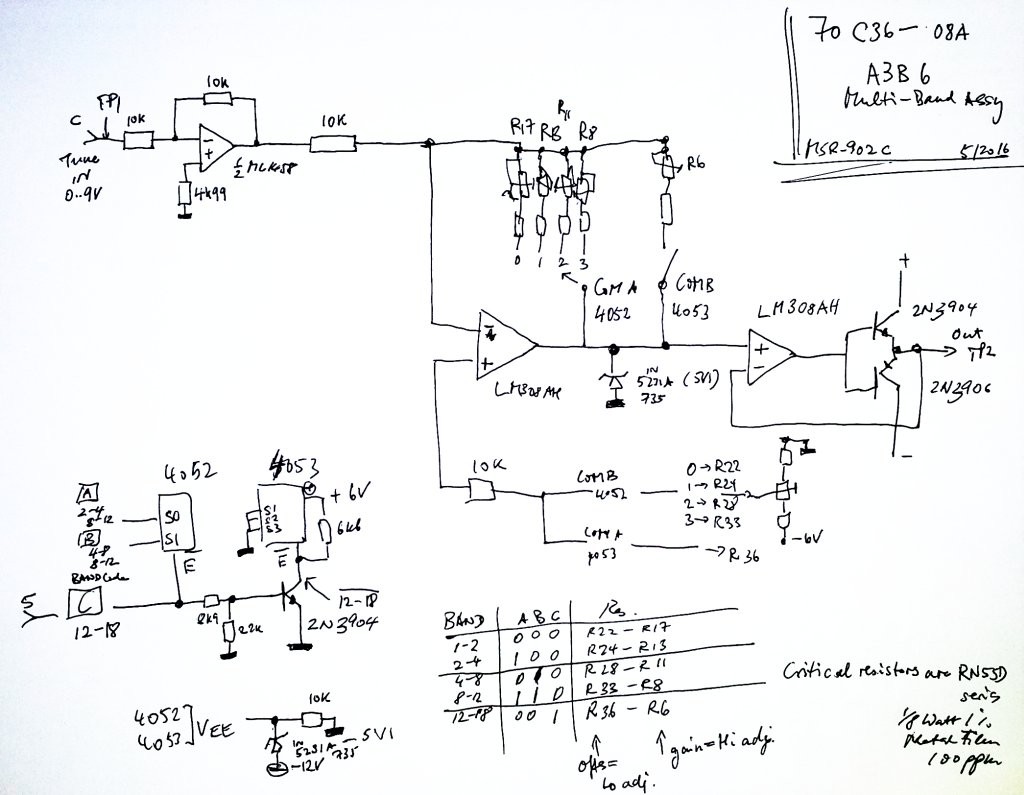 70 C36-08A
A3B6
Multi-Band Assy
MSR-902C 5/2016
C
TP1
10K
10K
Tune
IN
0..9V
4k99
10K
R17
R11
R8
R6
0 1 2 3
COM A
4052
COMB
4053
LM308AH
LM308AH
IN
5231A (5V1)
735
+
2N3904
Out
TP2
2N3906
-
10K
COMB
4052
0→R22
1→R24
2→R28
3→R33
-6V
COMA
4053
→R36
4052
4053
A
2-4
8-12
B
4-8
8-12
S0
S1
E
S1
S2
S3
E
+6V
6k6
BAND Code
5
C
12-18
8k9
22K
2N3904
12-18
BAND A B C Rs.
1-2 0 0 0 R22 - R17
2-4 1 0 0 R24 - R13
4-8 0 1 0 R28 - R11
8-12 1 1 0 R33 - R8
12-18 0 0 1 R36 - R6
offs=
Lo adj.
gain=Hi adj.
Critical resistors are RN55D
series
1/8 Watt 1%
Metal Film
100ppm
4052
4053
VEE
10K
IN
5231A
735
-5V1
-12V